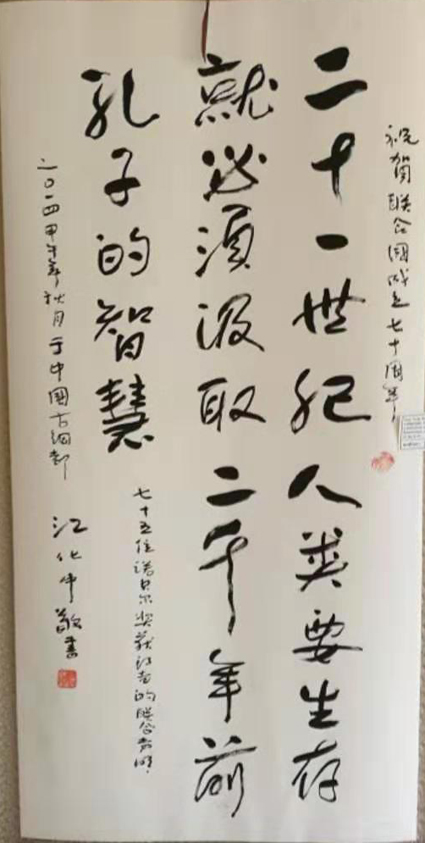 祝贺联合國成立七十周年
二十一世纪人类要生存
就必須汲取二千年前
孔子的智慧
七十五位诺贝尔奖获得者的联合声明
二〇一四甲午年秋月于中國古銅都
江化中敬書